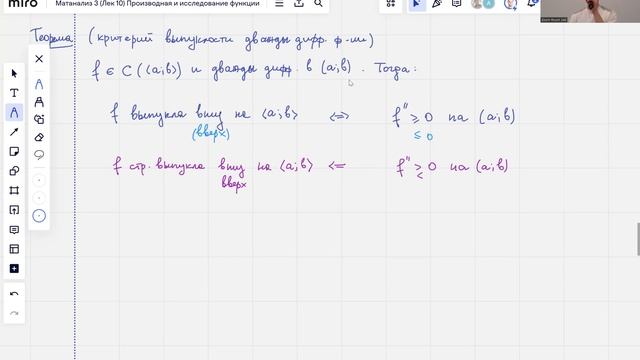 miro Матанализ 3 (Лек 10) Производная и исследование функции
Теорема (критерий выпуклости дважды дифф. ф-ии)
f ∈ C(⟨a;b⟩) и дважды дифф. в (a;b). Тогда:
f выпукла вниз на ⟨a;b⟩ ⟺ f'' ≥ 0 на (a;b)
(вверх) ≤ 0
f стр. выпукла вниз на ⟨a;b⟩ ⟸ f'' > 0 на (a;b)
вверх <